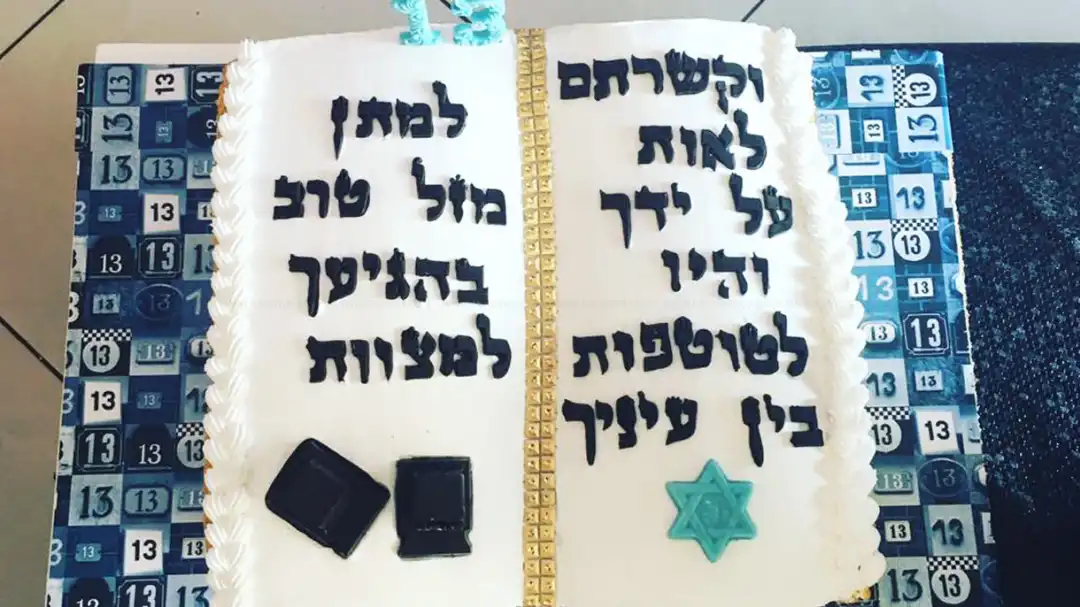 13
וקשרתם
לאות
על ידך
והיו
לטוטפות
בין עיניך
למתן
מזל טוב
בהגיעך
למצוות